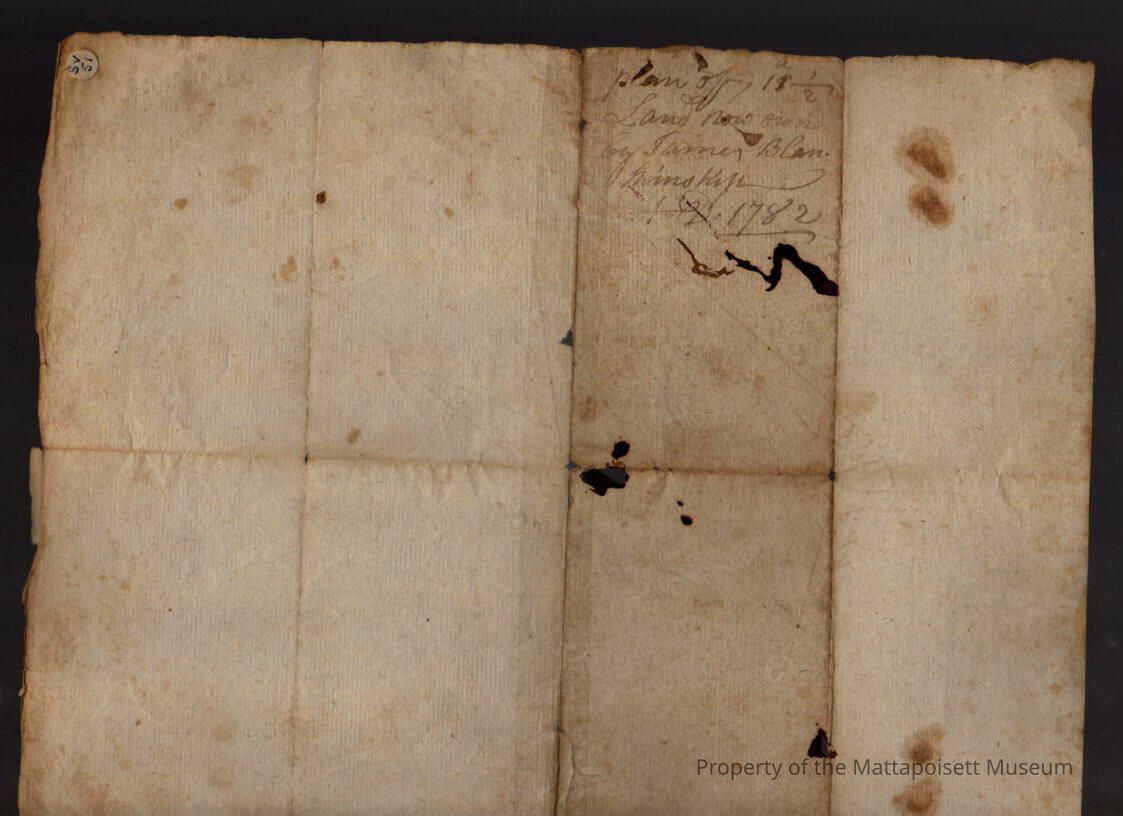 SV
51
plan off 18 a 1/2
Land now own
by James Blan-
kinship
A D. 1782
Property of the Mattapoisett Museum